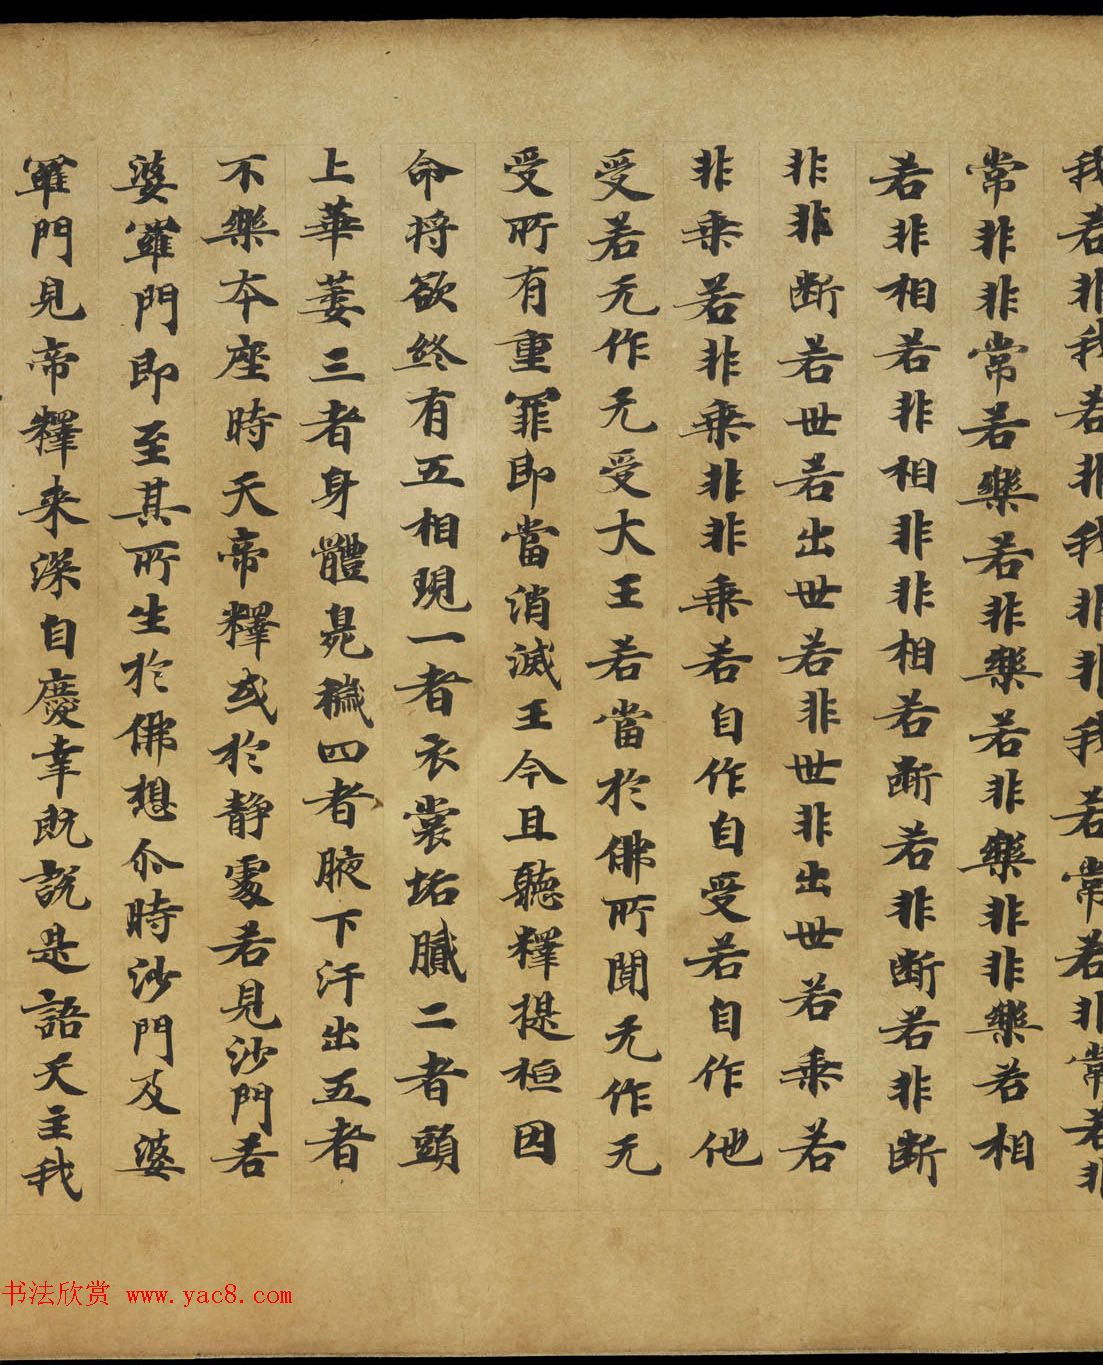 我若非我若非我非非我若常若非常若非
常非非常若樂若非樂若非樂非非樂若相
若非相若非相非非相若断若非断若非断
非非断若世若出世若非世非出世若乘若
非乘若非乘非非乘若自作自受若自作他
受若无作无受大王若當於佛所聞无作无
受所有重罪即當消滅王今且聽釋提桓因
命將欲終有五相現一者衣裳垢膩二者頭
上華萎三者身體臭穢四者腋下汗出五者
不樂本座時天帝釋或於静處若見沙門若
婆羅門即至其所生於佛想尒時沙門及婆
羅門見帝釋来深自慶幸既說是語天主我
书法欣赏 www.yac8.com